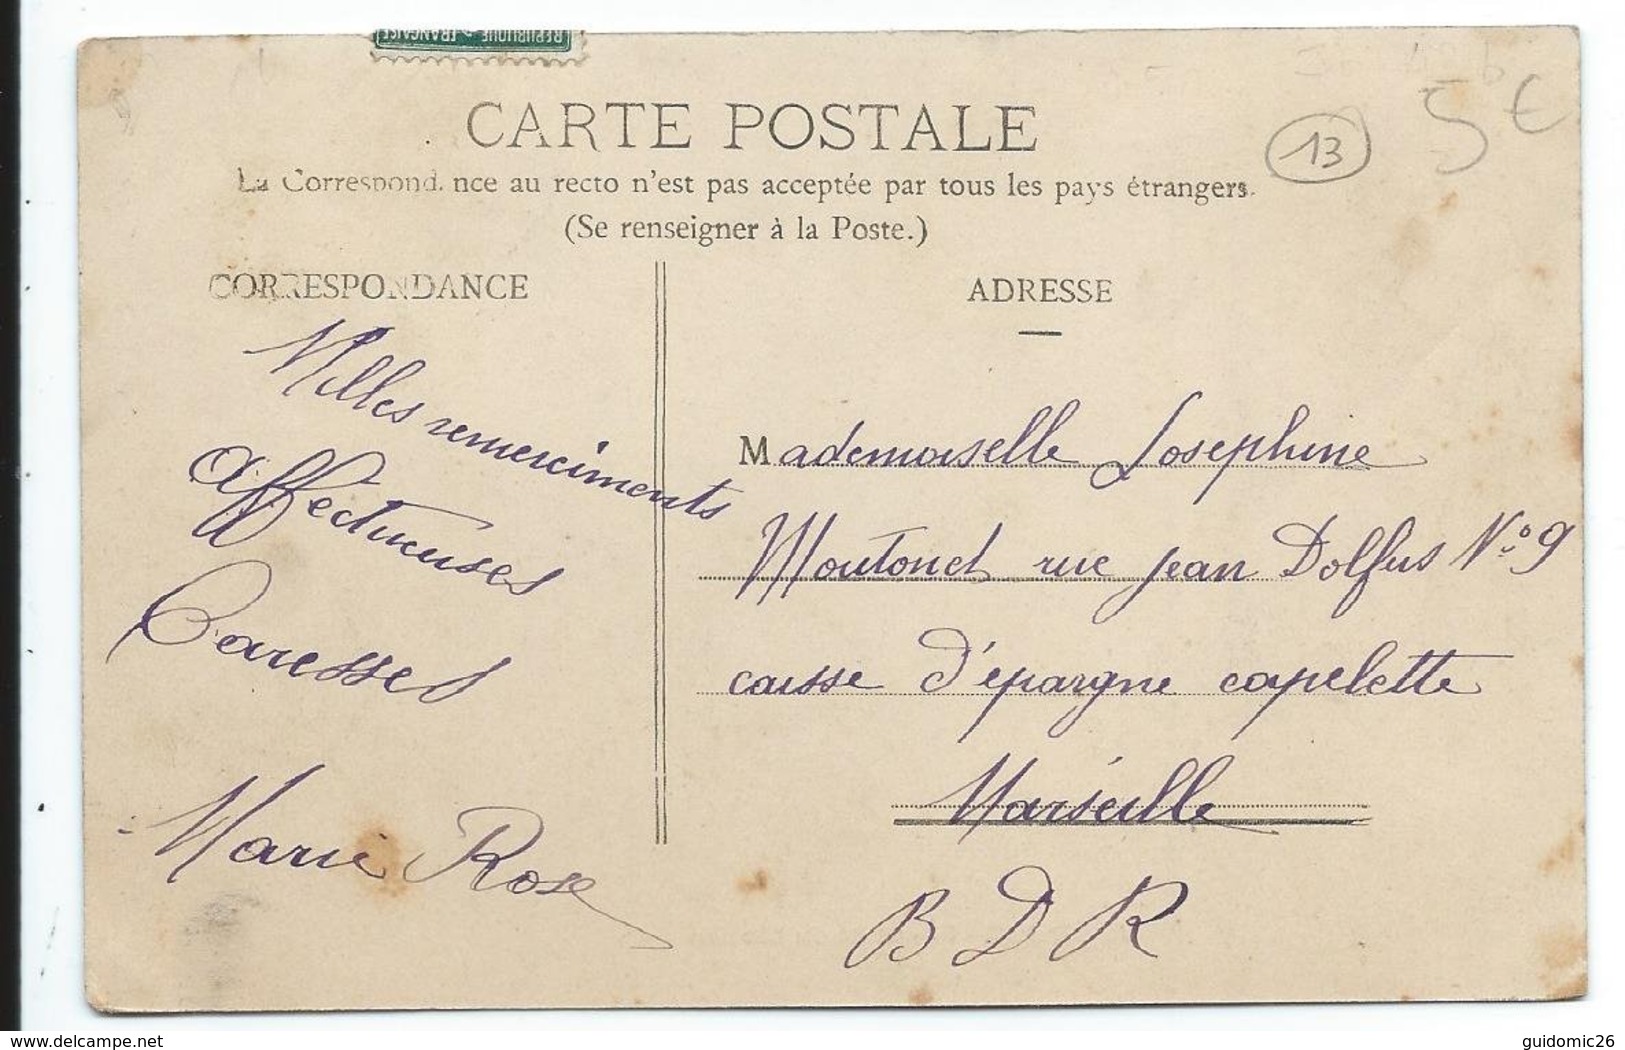 REPUBLIQUE FRANÇAISE
CARTE POSTALE
13
5 €
La Correspondance au recto n'est pas acceptée par tous les pays étrangers.
(Se renseigner à la Poste.)
CORRESPONDANCE
Milles remerciments
affectueuses
Caresses
Marie Rose
ADRESSE
Mademoiselle Josephine
Moutonet rue jean Dolfus N° 9
caisse d'épargne capelette
Marseille
B D R
delcampe.net
guidomic26